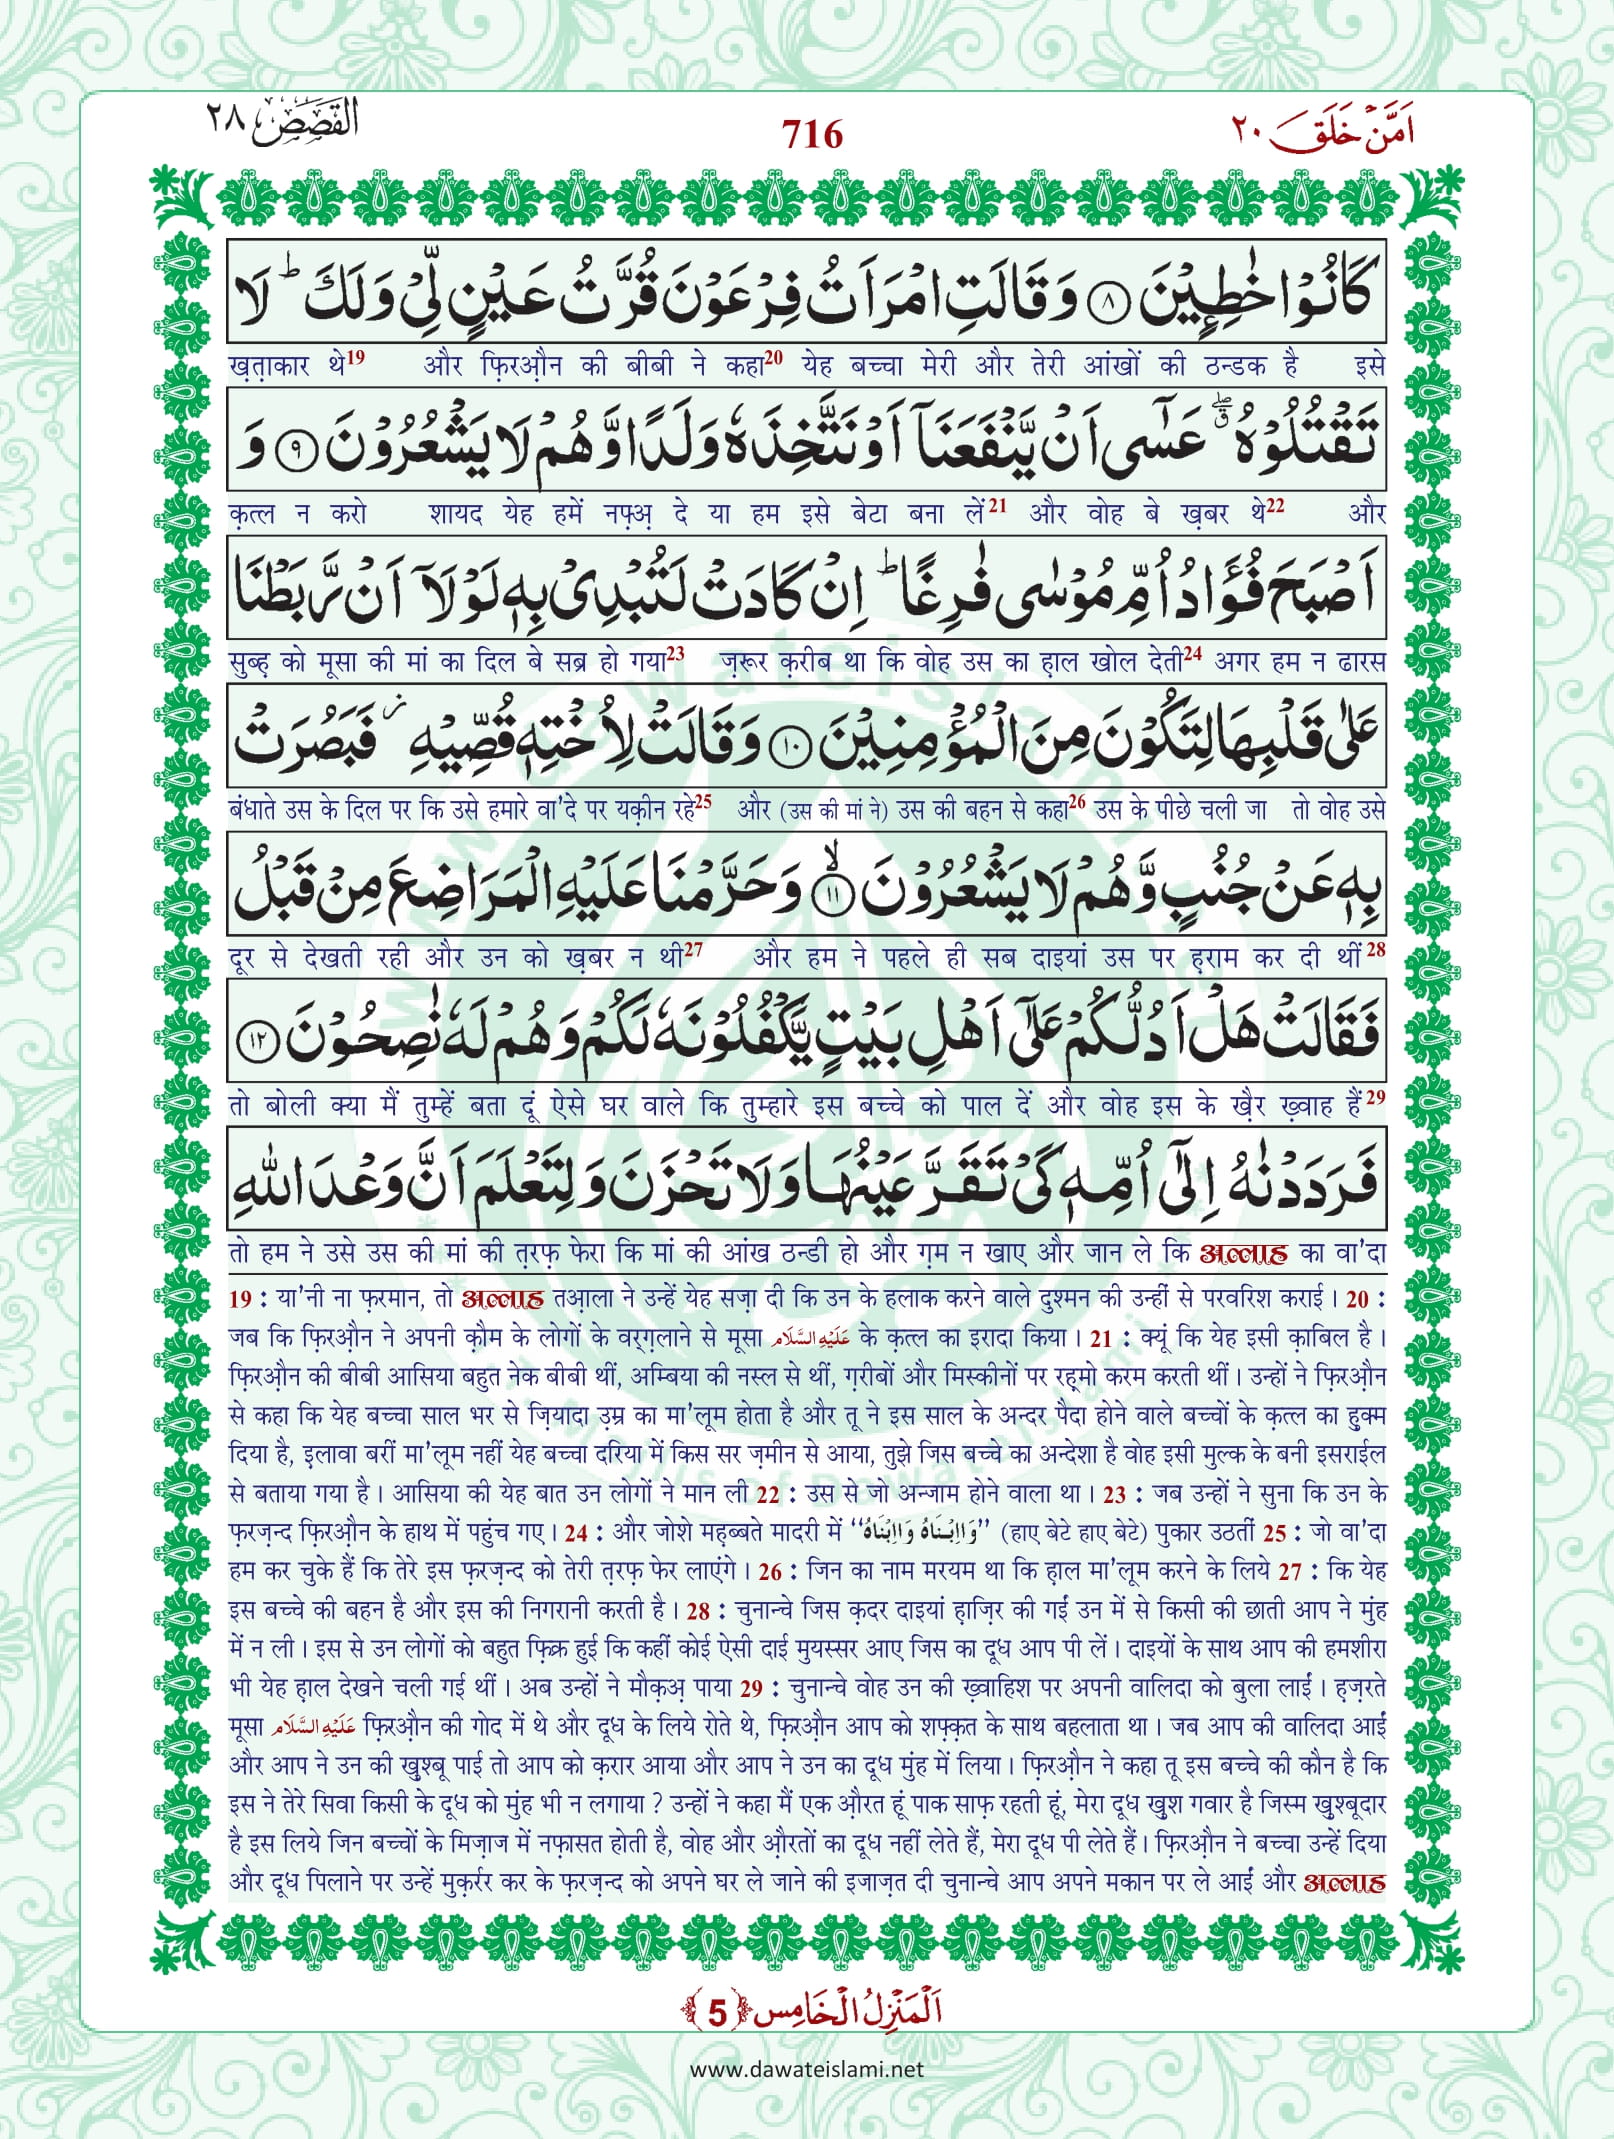 القصص ٢٨
716
اَمَّنْ خَلَقَ ٢٠
كَانُوْا خٰطِـٕیْنَ ﴿٨﴾ وَ قَالَتِ امْرَاَتُ فِرْعَوْنَ قُرَّتُ عَیْنٍ لِّیْ وَ لَكَؕ لَا
ख़त़ाकार थे19 और फ़िरऔ़न की बीबी ने कहा20 येह बच्चा मेरी और तेरी आंखों की ठन्डक है इसे
تَقْتُلُوْهُ ﳓ عَسٰۤى اَنْ یَّنْفَعَنَاۤ اَوْ نَتَّخِذَهٗ وَلَدًا وَّ هُمْ لَا یَشْعُرُوْنَ ﴿٩﴾ وَ
क़त्ल न करो शायद येह हमें नफ़्अ़ दे या हम इसे बेटा बना लें21 और वोह बे ख़बर थे22 और
اَصْبَحَ فُؤَادُ اُمِّ مُوْسٰى فٰرِغًاؕ اِنْ كَادَتْ لَتُبْدِیْ بِهٖ لَوْ لَاۤ اَنْ رَّبَطْنَا
सुब्ह़ को मूसा की मां का दिल बे सब्र हो गया23 ज़रूर क़रीब था कि वोह उस का ह़ाल खोल देती24 अगर हम न ढारस
عَلٰى قَلْبِهَا لِتَكُوْنَ مِنَ الْمُؤْمِنِیْنَ ﴿١٠﴾ وَ قَالَتْ لِاُخْتِهٖ قُصِّیْهِ٘ فَبَصُرَتْ
बंधाते उस के दिल पर कि उसे हमारे वा'दे पर यक़ीन रहे25 और (उस की मां ने) उस की बहन से कहा26 उस के पीछे चली जा तो वोह उसे
بِهٖ عَنْ جُنُبٍ وَّ هُمْ لَا یَشْعُرُوْنَۙ ﴿١١﴾ وَ حَرَّمْنَا عَلَیْهِ الْمَرَاضِعَ مِنْ قَبْلُ
दूर से देखती रही और उन को ख़बर न थी27 और हम ने पहले ही सब दाइयां उस पर ह़राम कर दी थीं28
فَقَالَتْ هَلْ اَدُلُّكُمْ عَلٰۤى اَهْلِ بَیْتٍ یَّكْفُلُوْنَهٗ لَكُمْ وَ هُمْ لَهٗ نٰصِحُوْنَ ﴿١٢﴾
तो बोली क्या मैं तुम्हें बता दूं ऐसे घर वाले कि तुम्हारे इस बच्चे को पाल दें और वोह इस के ख़ैर ख़्वाह हैं29
فَرَدَدْنٰهُ اِلٰۤى اُمِّهٖ كَیْ تَقَرَّ عَیْنُهَا وَ لَا تَحْزَنَ وَ لِتَعْلَمَ اَنَّ وَعْدَ اللّٰهِ
तो हम ने उसे उस की मां की त़रफ़ फेरा कि मां की आंख ठन्डी हो और ग़म न खाए और जान ले कि अल्लाह का वा'दा
19 : या'नी ना फ़रमान, तो अल्लाह तआ़ला ने उन्हें येह सज़ा दी कि उन के हलाक करने वाले दुश्मन की उन्हीं से परवरिश कराई । 20 :
जब कि फ़िरऔ़न ने अपनी क़ौम के लोगों के वरग़्लाने से मूसा عَلَیْهِ السَّلَام के क़त्ल का इरादा किया । 21 : क्यूं कि येह इसी क़ाबिल है ।
फ़िरऔ़न की बीबी आसिया बहुत नेक बीबी थीं, अम्बिया की नस्ल से थीं, ग़रीबों और मिस्कीनों पर रह़्मो करम करती थीं । उन्हों ने फ़िरऔ़न
से कहा कि येह बच्चा साल भर से ज़ियादा उ़म्र का मा'लूम होता है और तू ने इस साल के अन्दर पैदा होने वाले बच्चों के क़त्ल का हुक्म
दिया है, इ़लावा बरीं मा'लूम नहीं येह बच्चा दरिया में किस सर ज़मीन से आया, तुझे जिस बच्चे का अन्देशा है वोह इसी मुल्क के बनी इसराईल
से बताया गया है । आसिया की येह बात उन लोगों ने मान ली 22 : उस से जो अन्जाम होने वाला था । 23 : जब उन्हों ने सुना कि उन के
फ़रज़न्द फ़िरऔ़न के हाथ में पहुंच गए । 24 : और जोशे मह़ब्बते मादरी में “وَااِبْنَاهُ وَااِبْنَاهُ” (हाए बेटे हाए बेटे) पुकार उठतीं 25 : जो वा'दा
हम कर चुके हैं कि तेरे इस फ़रज़न्द को तेरी त़रफ़ फेर लाएंगे । 26 : जिन का नाम मरयम था कि ह़ाल मा'लूम करने के लिये 27 : कि येह
इस बच्चे की बहन है और इस की निगरानी करती है । 28 : चुनान्चे जिस क़दर दाइयां ह़ाज़िर की गईं उन में से किसी की छाती आप ने मुंह
में न ली । इस से उन लोगों को बहुत फ़िक्र हुई कि कहीं कोई ऐसी दाई मुयस्सर आए जिस का दूध आप पी लें । दाइयों के साथ आप की हमशीरा
भी येह ह़ाल देखने चली गई थीं । अब उन्हों ने मौक़अ़ पाया 29 : चुनान्चे वोह उन की ख़्वाहिश पर अपनी वालिदा को बुला लाईं । ह़ज़रते
मूसा عَلَیْهِ السَّلَام फ़िरऔ़न की गोद में थे और दूध के लिये रोते थे, फ़िरऔ़न आप को शफ़्क़त के साथ बहलाता था । जब आप की वालिदा आईं
और आप ने उन की ख़ुश्बू पाई तो आप को क़रार आया और आप ने उन का दूध मुंह में लिया । फ़िरऔ़न ने कहा तू इस बच्चे की कौन है कि
इस ने तेरे सिवा किसी के दूध को मुंह भी न लगाया ? उन्हों ने कहा मैं एक औ़रत हूं पाक साफ़ रहती हूं, मेरा दूध ख़ुश गवार है जिस्म ख़ुश्बूदार
है इस लिये जिन बच्चों के मिज़ाज में नफ़ासत होती है, वोह और औ़रतों का दूध नहीं लेते हैं, मेरा दूध पी लेते हैं । फ़िरऔ़न ने बच्चा उन्हें दिया
और दूध पिलाने पर उन्हें मुक़र्रर कर के फ़रज़न्द को अपने घर ले जाने की इजाज़त दी चुनान्चे आप अपने मकान पर ले आईं और अल्लाह
اَلْمَنْزِلُ الْخَامِس ﴿5﴾
www.dawateislami.net